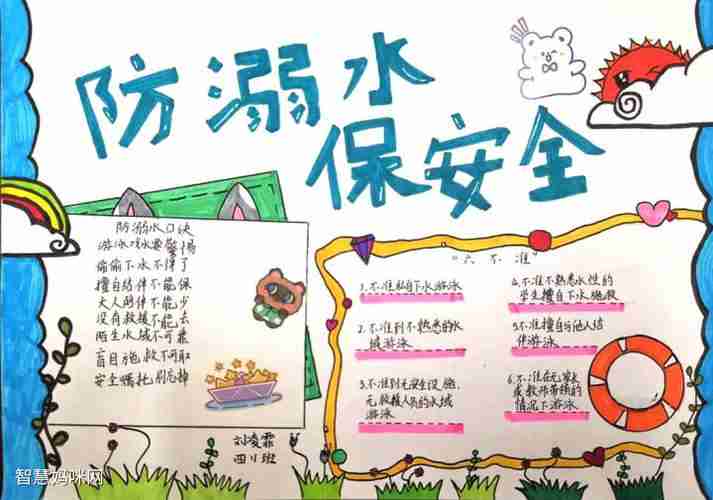 防溺水
保安全
防溺水口诀
游泳戏水要警惕
偷偷下水不得了
擅自结伴不能保
大人陪伴不能少
没有救援不能去
陌生水域不可靠
盲目施救不可取
安全嘱托别忘掉
刘凌霏
四(1)班
"六不准"
1.不准私自下水游泳
2.不准到不熟悉的水
域游泳
3.不准到无安全设施,
无救援人员的水域
游泳
4.不准不熟悉水性的
学生擅自下水施救
5.不准擅自与他人结
伴游泳
6.不准在无家长
或教师带领的
情况下游泳
智慧妈咪网